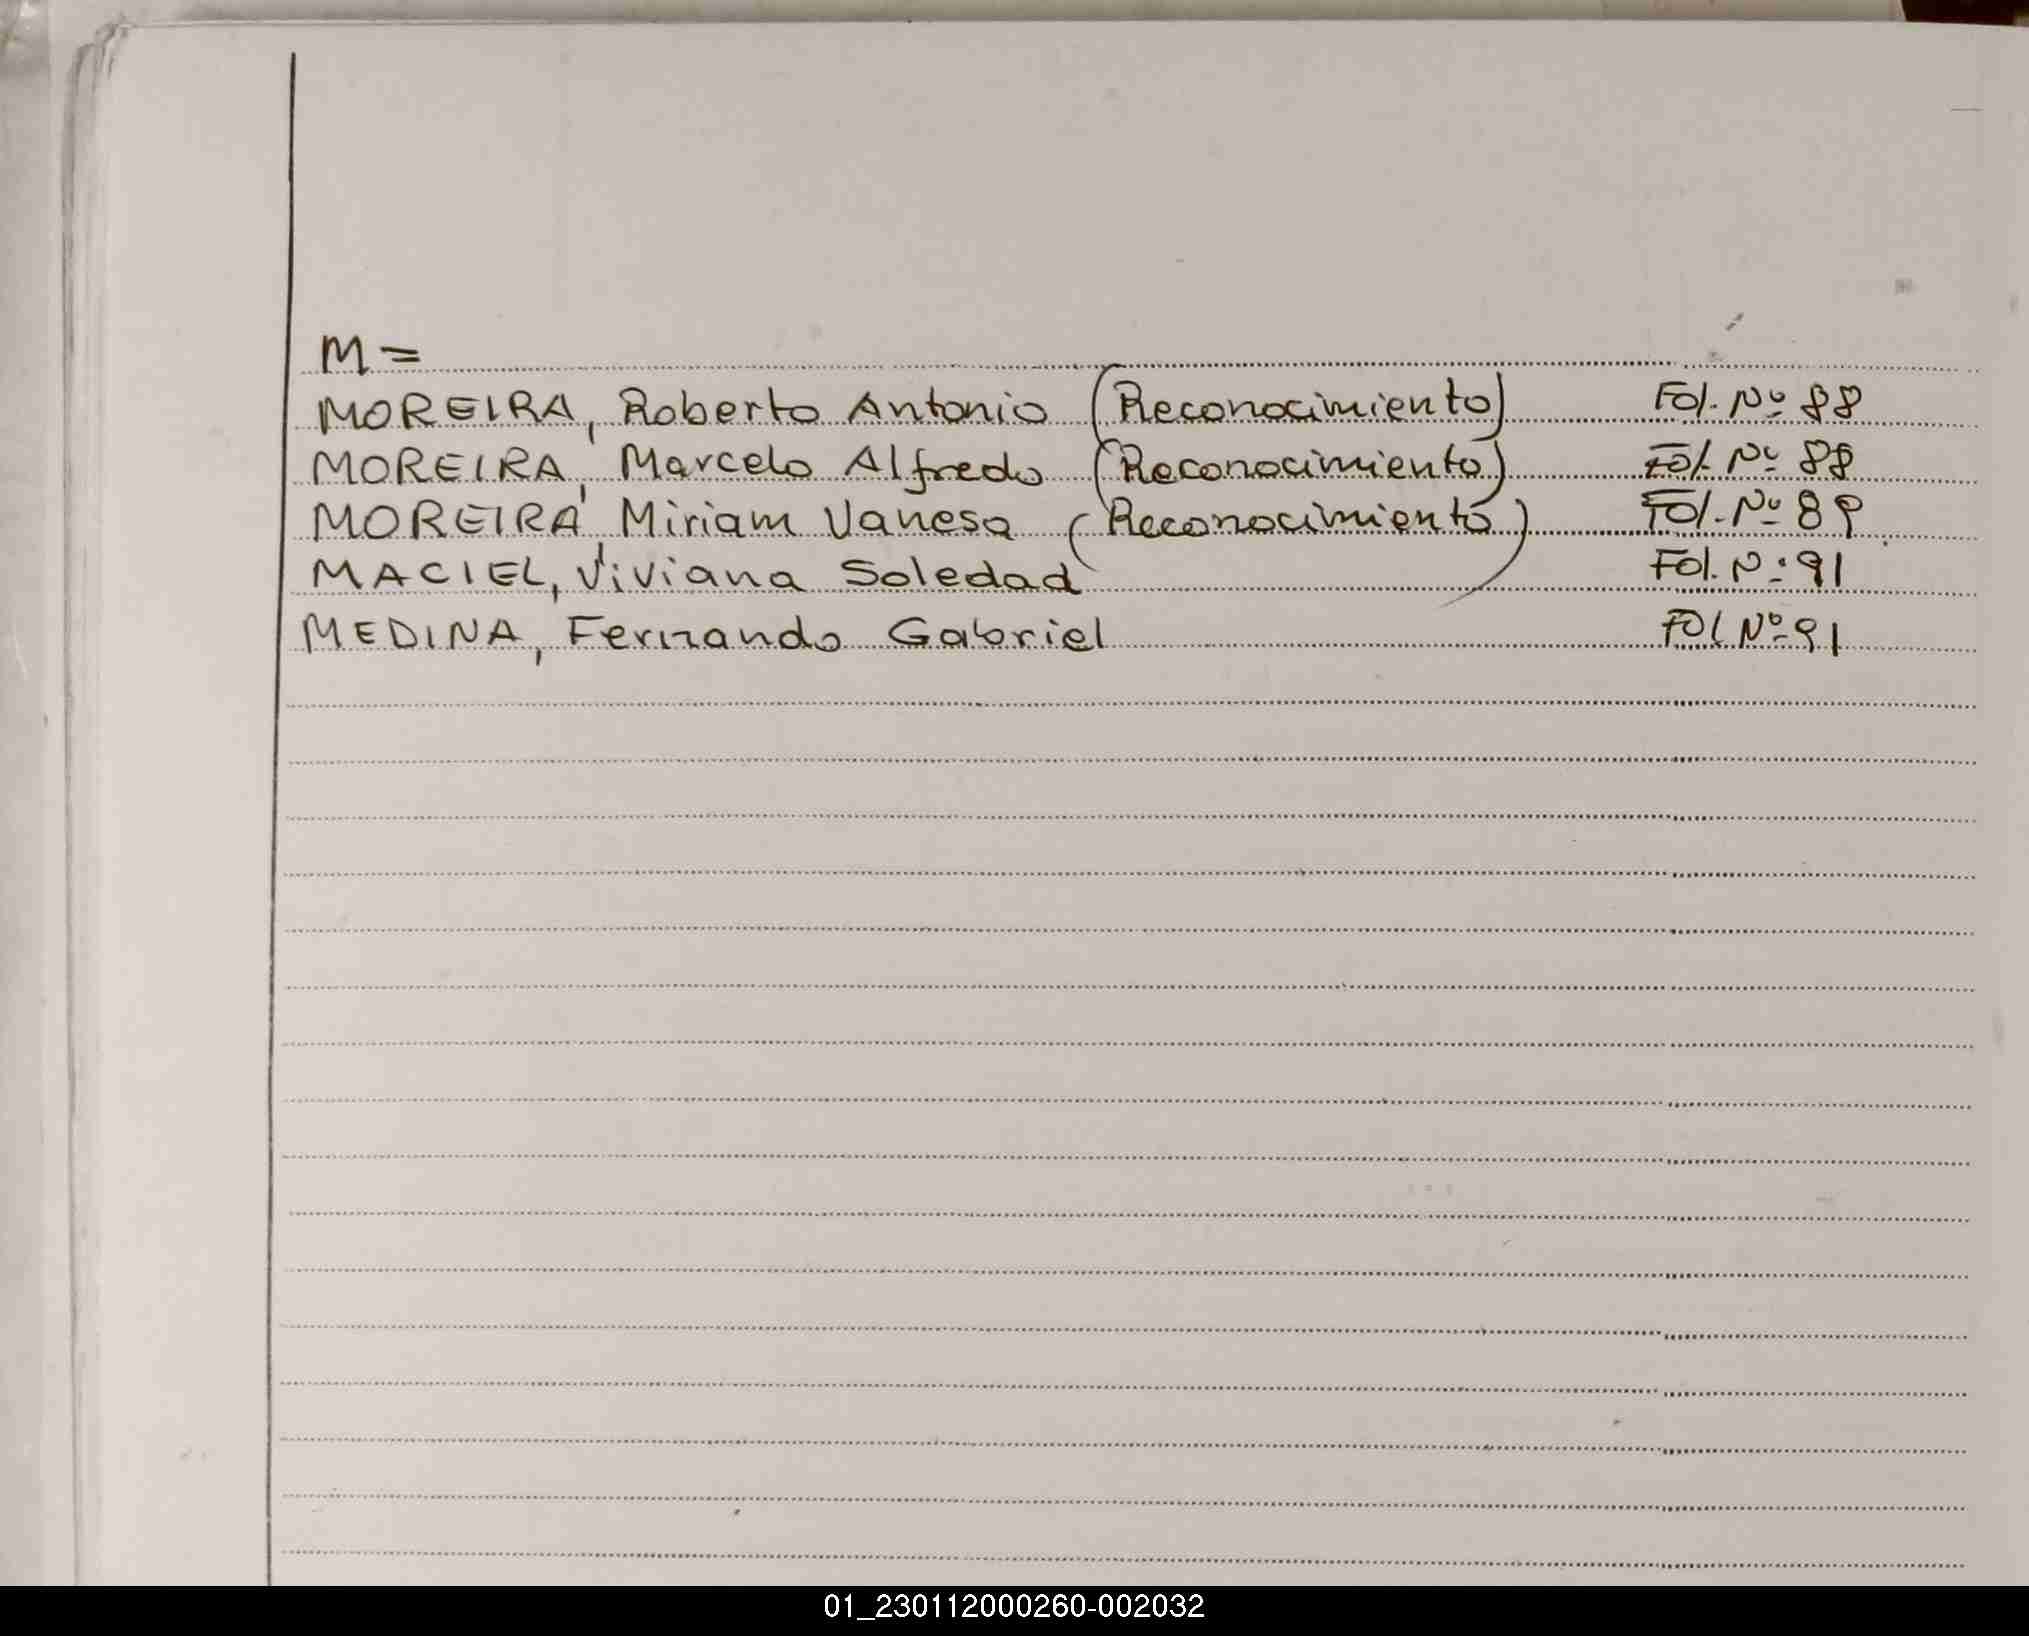 M=
MOREIRA, Roberto Antonio (Reconocimiento) Fol. Nº 88
MOREIRA, Marcelo Alfredo (Reconocimiento) Fol. Nº 88
MOREIRA, Miriam Vanesa (Reconocimiento) Fol. Nº 89
MACIEL, Viviana Soledad Fol. Nº 91
MEDINA, Fernando Gabriel Fol Nº 91
01_230112000260-002032